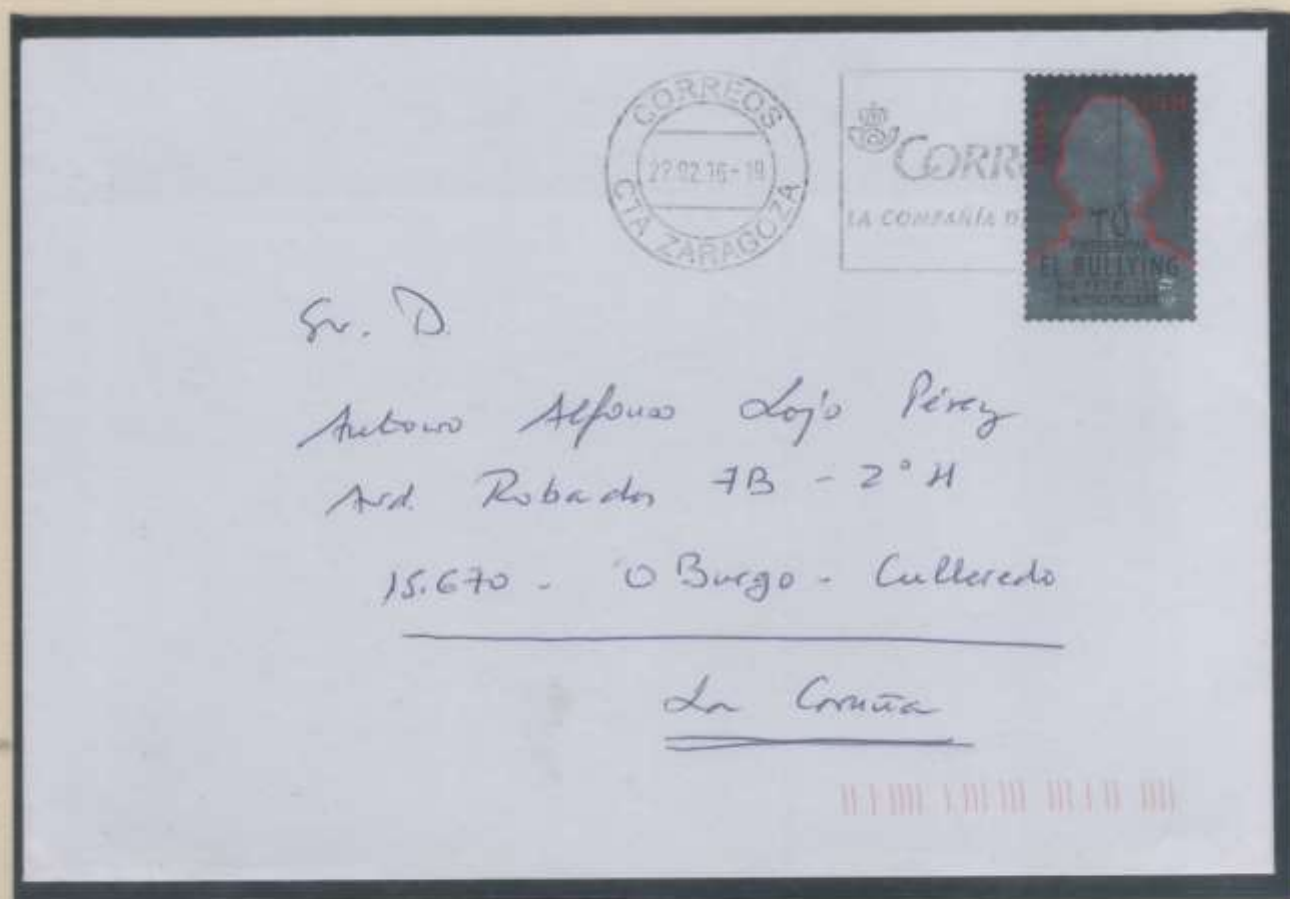 CORREOS
22.02.16-19
CTA ZARAGOZA
CORR
LA COMPAÑÍA D
TÚ
EL BULLYING
Sr. D.
Antonio Alfonso Lojo Pérez
Avd. Robador 7B - 2º H
15.670 - O Burgo - Culleredo
La Coruña